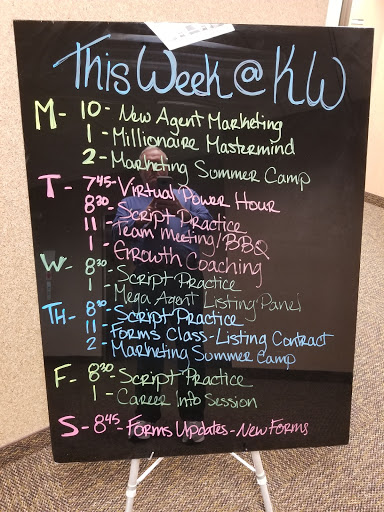 This Week @ KW
M - 10 - New Agent Marketing
1 - Millionaire Mastermind
2 - Marketing Summer Camp
T - 745 - Virtual Power Hour
8 30 - Script Practice
11 - Team Meeting/BBQ
1 - Growth Coaching
W - 8 30 - Script Practice
1 - Mega Agent Listing Panel
TH - 8 30 - Script Practice
11 - Forms Class - Listing Contract
2 - Marketing Summer Camp
F - 8 30 - Script Practice
1 - Career Info Session
S - 8 45 - Forms Updates - New Forms